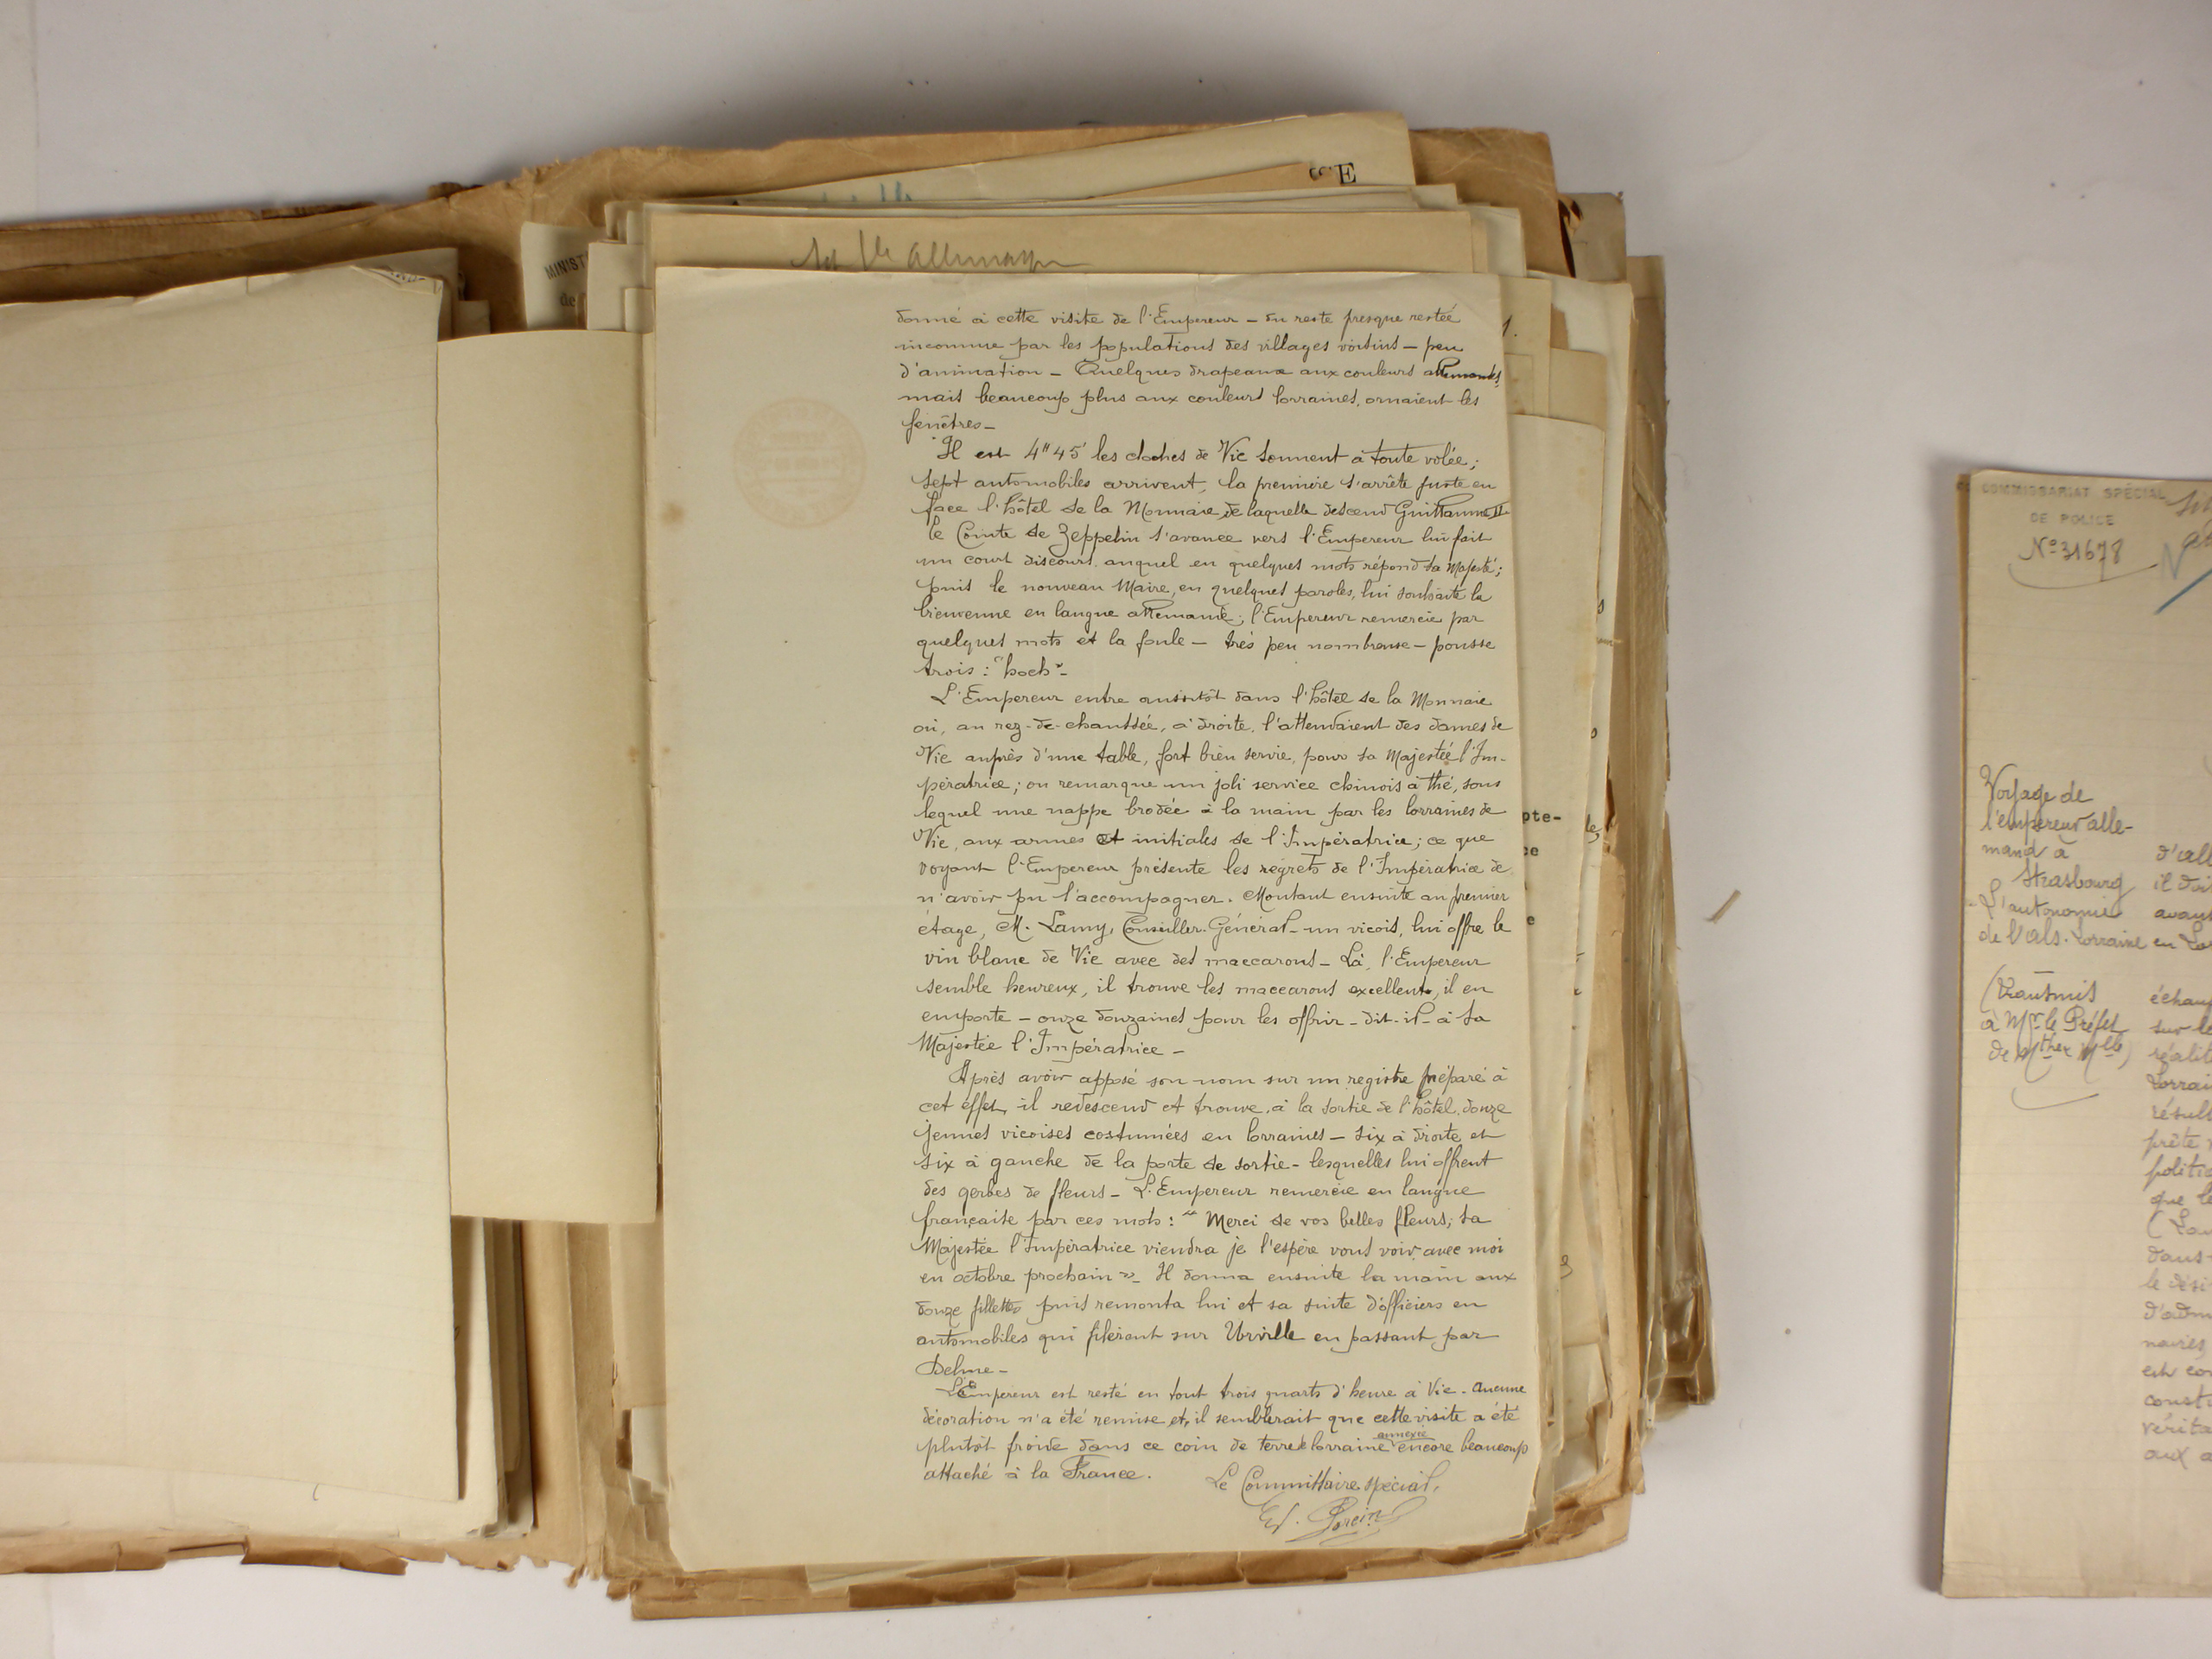 E
MINIST
de
1.
donné à cette visite de l'Empereur – du reste presque restée
inconnue par les populations des villages voisins – peu
d'animation – Quelques drapeaux aux couleurs allemandes,
mais beaucoup plus aux couleurs lorraines, ornaient les
fenêtres –
Il est 4h 45' les cloches de Vic sonnent à toute volée;
sept automobiles arrivent, la première s'arrête juste en
face l'hôtel de la Monnaie, de laquelle descend Guillaume II
le Comte de Zeppelin s'avance vers l'Empereur lui fait
un court discours auquel en quelques mots répond sa Majesté;
puis le nouveau Maire, en quelques paroles, lui souhaite la
bienvenue en langue allemande; l'Empereur remercie par
quelques mots et la foule – très peu nombreuse – pousse
trois : "hoch" –
L'Empereur entre aussitôt dans l'hôtel de la Monnaie
où, au rez-de-chaussée, à droite, l'attendaient des dames de
Vic auprès d'une table, fort bien servie, pour sa Majestée l'Im-
pératrice; on remarque un joli service chinois à thé, sous
lequel une nappe brodée à la main par les lorraines de
Vic, aux armes et initiales de l'Impératrice; ce que
voyant l'Empereur présente les regrets de l'Impératrice de
n'avoir pu l'accompagner. Montant ensuite au premier
étage, M. Lamy, Conseiller-Général – un vicois, lui offre le
vin blanc de Vic avec des maccarons – Là, l'Empereur
semble heureux, il trouve les maccarons excellents, il en
emporte – onze douzaines pour les offrir – dit-il – à sa
Majestée l'Impératrice –
Après avoir apposé son nom sur un registre préparé à
cet effet, il redescend et trouve, à la sortie de l'hôtel, douze
jeunes vicoises costumées en lorraines – six à droite et
six à gauche de la porte de sortie – lesquelles lui offrent
des gerbes de fleurs – L'Empereur remercie en langue
française par ces mots : "Merci de vos belles fleurs; sa
Majestée l'Impératrice viendra je l'espère vous voir avec moi
en octobre prochain" – Il donna ensuite la main aux
douze fillettes puis remonta lui et sa suite d'officiers en
automobiles qui filèrent sur Urville en passant par
Delme –
L'Empereur est resté en tout trois quarts d'heure à Vic. Aucune
décoration n'a été remise et, il semblerait que cette visite a été
plutôt froide dans ce coin de terre de lorraine annexée encore beaucoup
attaché à la France.
Le Commissaire spécial,
pte-
ce
e
COMMISSARIAT SPÉCIAL
DE POLICE
No 31678
Voyage de
l'empereur alle-
mand à
Strasbourg
L'autonomie
de l'Als. Lorraine
(Transmis
à Mr le Préfet
de Mthe & Mlle)
d'all
il doi
avant
en Lo
échan
sur le
réalit
Lorrai
résult
prête
politi
que le
dans
le dési
d'adm
naires,
est con
const
vérita
aux a